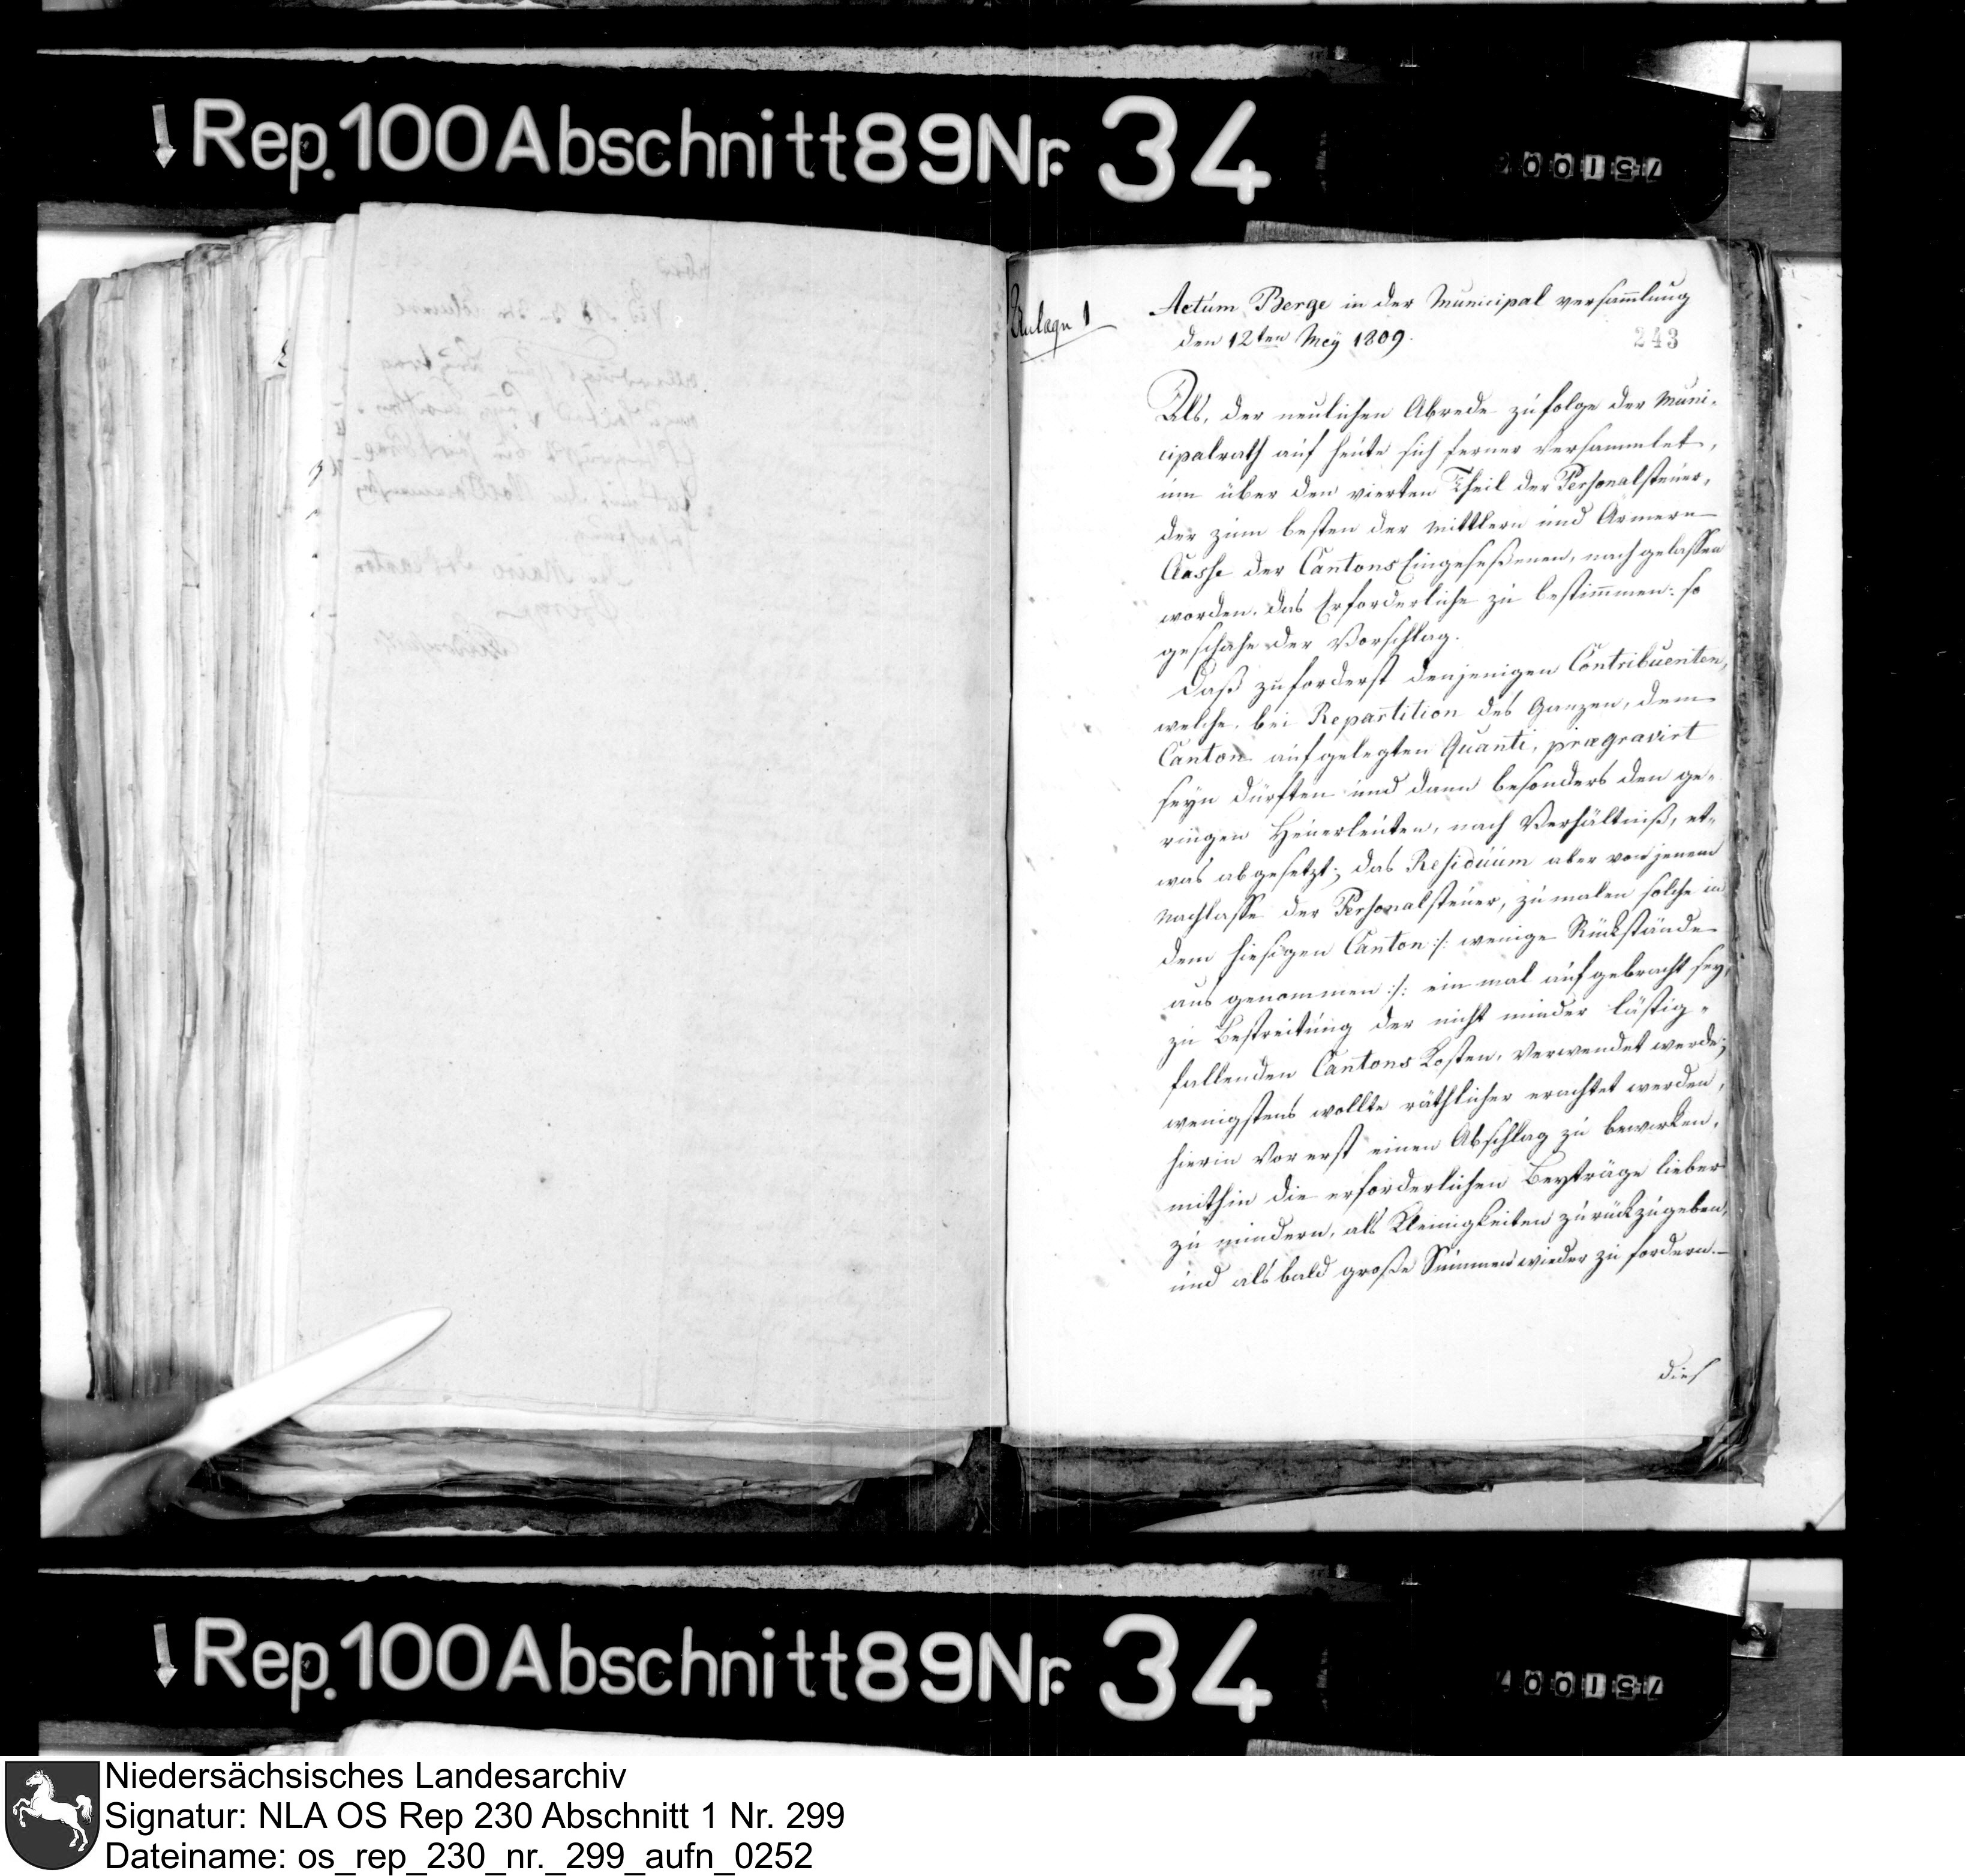 Rep. 100 Abschnitt 89 Nr. 34
Anlage 1
Actum Berge in der Municipal versam̄lung
den 12ten Mey 1809.
243
Als, der neulichen Abrede zufolge der Muni-
cipalrath auf heute sich ferner versammlet,
um über den vierten Theil der Personalsteuer,
der zum besten der mittlern und Armern
Classe der Cantons Eingeseßenen, nachgelassen
worden, das Erforderliche zu bestim̄en: so
geschahe der Vorschlag.
Daß zuforderst denjenigen Contribuenten,
welche, bei Repartition des Ganzen, dem
Canton aufgelegten Quanti, prægravirt
seyn dürften und dann besonders den ge-
ringen Heuerleuten, nach Verhältniß, et-
was abgesetzt; das Residuum aber von jenem
Nachlasse der Personalsteuer, zumalen solche in
dem hiesigen Canton :/: wenige Rückstände
ausgenommen :/: ein mal aufgebracht sey,
zu Bestreitung der nicht minder lästig-
fallenden Cantons Kosten, verwendet werde;
wenigstens wollte räthlicher erachtet werden,
hierin vorerst einen Abschlag zu bewirken,
mithin die erforderlichen Beyträge lieber
zu mindern, als Kleinigkeiten zurückzugeben,
und alsbald große Summen wieder zu fordern.-
dies
Rep. 100 Abschnitt 89 Nr. 34
Niedersächsisches Landesarchiv
Signatur: NLA OS Rep 230 Abschnitt 1 Nr. 299
Dateiname: os_rep_230_nr._299_aufn_0252